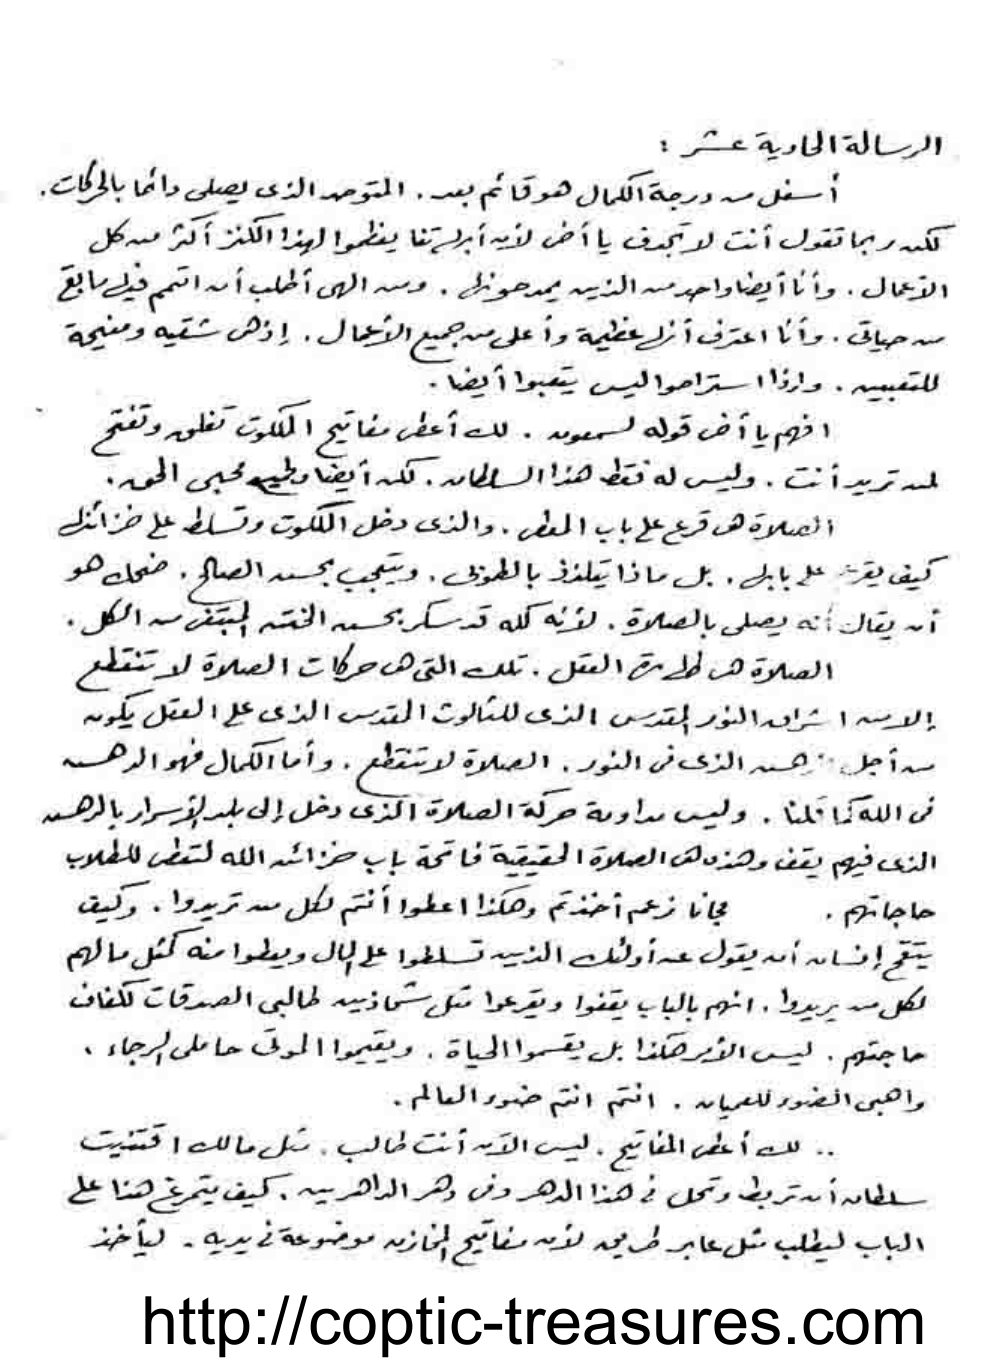 الرسالة الحادية عشر :
أسفل من درجة الكمال هو قائم بعد . المتوحد الذى يصلى دائما بالحركات .
لكن ربما تقول أنت لا تجدف يا أخى لأن أبهاتنا يعظموا لهذا الكنز أكثر من كل
الأعمال . وأنا أيضا واحد من الذين يمدحونه . ومن الهى أطلب أن اتمم فيه ما بقى
من حياتى . وأنا اعترف أنه عظيمة وأعلى من جميع الأعمال . إذ هى شقيه ومنيحة
للتعبين . وإذا استراحوا ليس يتعبوا أيضا .
افهم يا أخى قوله لسمعون . لك أعطى مفاتيح الملكوت تغلق وتفتح
لمن تريد أنت . وليس له فقط هذا السلطان . لكن أيضا ولجميع محبى الحق .
الصلاة هى قرع على باب المعطى . والذى دخل الملكوت وتسلط على خزائنه
كيف يقرع على بابه . بل ماذا يتلذذ بالطوبى . ويتعجب بحسن الصالح . ضحك هو
أن يقال أنه يصلى بالصلاة . لأنه كله قد سكر بحسن الختن المبتغى من الكل .
الصلاة هى طهارة العقل . تلك التى هى حركات الصلاة لا تنقطع
إلا من اشراق النور المقدس الذى للثالوث المقدس الذى على العقل يكون
من أجل الدهش الذى فى النور . الصلاة لا تنقطع . وأما الكمال فهو الدهش
فى الله كما قلنا . وليس مداومة حركة الصلاة الذى دخل إلى بلد الأسرار بالدهش
الذى فيهم يقف وهذه هى الصلاة الحقيقية فاتحة باب خزائن الله لتعطى للطلاب
حاجاتهم . مجانا زعم أخذتم وهكذا اعطوا أنتم لكل من تريدوا . وكيف
يتقح إنسان أن يقول عن أولئك الذين تسلطوا على المال ويعطوا منه كمثل مالهم
لكل من يريدوا . انهم بالباب يقفوا ويقرعوا مثل شحاذين طالبى الصدقات لكفاف
حاجتهم . ليس الأمر هكذا بل يقسموا الحياة . ويقيموا الموتى حاملى الرجاء .
واهبى الضوء للعميان . انتم انتم ضوء العالم .
.. لك أعطى المفاتيح . ليس الآن أنت طالب . مثل مالك اقتنيت
سلطان أن تربط وتحل فى هذا الدهر وفى دهر الداهرين . كيف يتمرغ هذا على
الباب ليطلب مثل عابر طريق لأن مفاتيح المخازن موضوعة فى يديه . ليأخذ
http://coptic-treasures.com